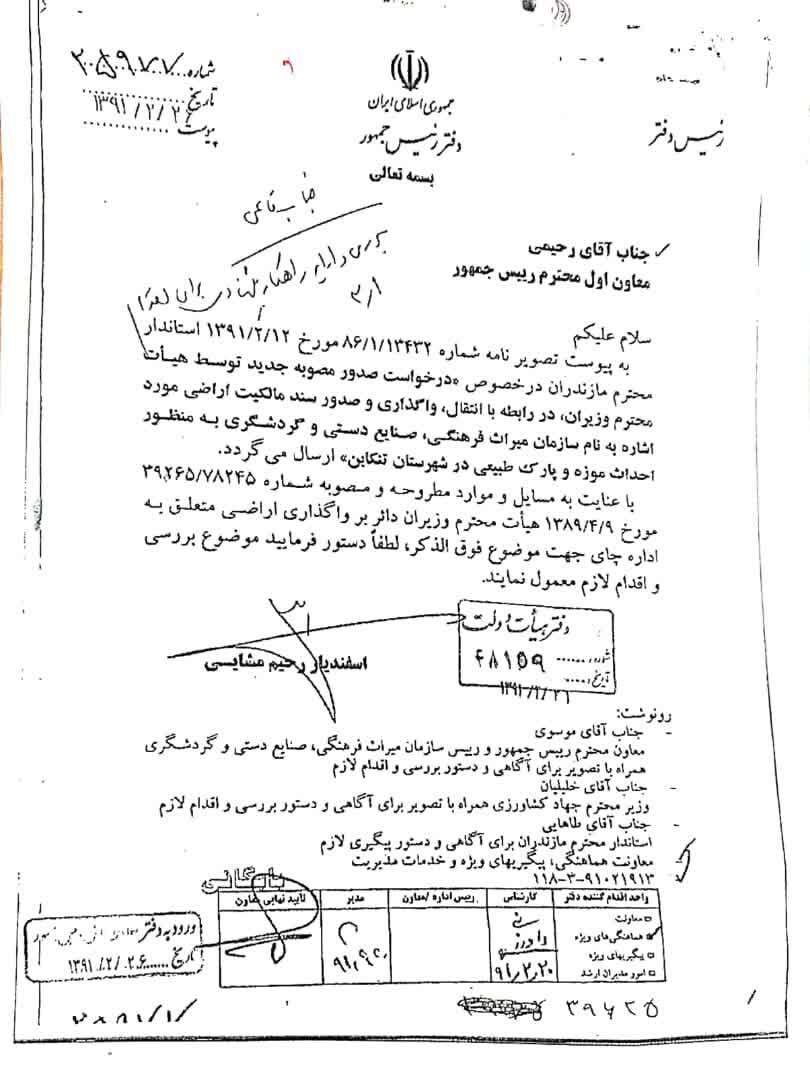 جمهوری اسلامی ایران
دفتر رئیس جمهور
رئیس دفتر
شماره
تاریخ ۱۳۹۱/۲/۲۶
پیوست
بسمه تعالی
جناب آقای رحیمی
معاون اول محترم رییس جمهور
سلام علیکم
به پیوست تصویر نامه شماره ۸۶/۱/۱۳۴۳۲ مورخ ۱۳۹۱/۲/۱۲ استاندار
محترم مازندران درخصوص «درخواست صدور مصوبه جدید توسط هیأت
محترم وزیران، در رابطه با انتقال، واگذاری و صدور سند مالکیت اراضی مورد
اشاره به نام سازمان میراث فرهنگی، صنایع دستی و گردشگری به منظور
احداث موزه و پارک طبیعی در شهرستان تنکابن» ارسال می گردد.
با عنایت به مسایل و موارد مطروحه و مصوبه شماره ۳۹٫۲۶۵/۷۸۲۴۵
مورخ ۱۳۸۹/۴/۹ هیأت محترم وزیران دائر بر واگذاری اراضی متعلق به
اداره چای جهت موضوع فوق الذکر، لطفاً دستور فرمایید موضوع بررسی
و اقدام لازم معمول نمایند.
اسفندیار رحیم مشایی
دفتر هیأت دولت
شماره ۴۸۱۵۹
تاریخ ۱۳۹۱/۲/۲۶
رونوشت:
- جناب آقای موسوی
معاون محترم رییس جمهور و رییس سازمان میراث فرهنگی، صنایع دستی و گردشگری
همراه با تصویر برای آگاهی و دستور بررسی و اقدام لازم
- جناب آقای خلیلیان
وزیر محترم جهاد کشاورزی همراه با تصویر برای آگاهی و دستور بررسی و اقدام لازم
- جناب آقای طاهایی
استاندار محترم مازندران برای آگاهی و دستور پیگیری لازم
معاونت هماهنگی، پیگیریهای ویژه و خدمات مدیریت
۱۱۸-۳-۹۱۰۲۱۹۱۳
بایگانی
واحد اقدام کننده دفتر کارشناس رییس اداره /معاون مدیر تایید نهایی معاون
معاونت
هماهنگی های ویژه
پیگیریهای ویژه
امور مدیران ارشد
ورود به دفتر
تاریخ ۱۳۹۱/۲/۰۲۶
۳۹۶۲۵